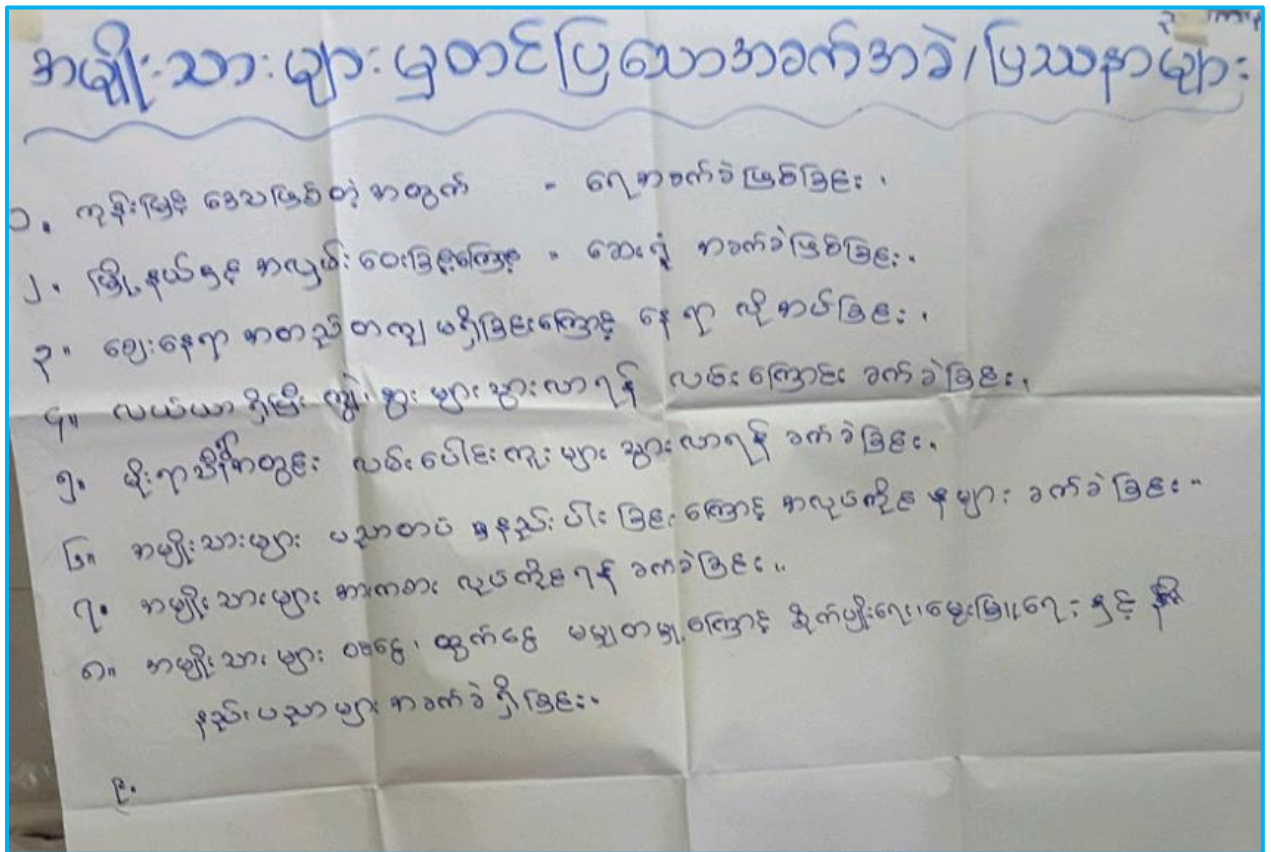 အမျိုးသားများမှတင်ပြသောအခက်အခဲ/ပြဿနာများ
၁. ကုန်းမြင့် ဒေသဖြစ်တဲ့ အတွက် - ရေအခက်ခဲဖြစ်ခြင်း.
၂. မြို့နယ်နှင့် အလှမ်းဝေးခြင့်ကြောင့် - ဆေးရုံ အခက်ခဲဖြစ်ခြင်း.
၃။ ဈေးနေရာ အတည်တကျ မရှိခြင်းကြောင့် နေရာ လိုအပ်ခြင်း.
၄။ လယ်ယာ ရှိပြီး ကျွဲ၊ နွား များသွားလာရန် လမ်းကြောင်း ခက်ခဲခြင်း.
၅။ မိုးရာသီတွင်း လမ်းပေါင်းကူး များ သွားလာရန် ခက်ခဲခြင်း.
၆။ အမျိုးသားများ ပညာတပ် နည်းပါး ခြင်းကြောင့် အလုပ်ကိုင် များ ခက်ခဲခြင်း။
၇။ အမျိုးသားများ အားကစား လုပ်ကိုင်ရန် ခက်ခဲခြင်း။
၈။ အမျိုးသားများ ဝင်ငွေ၊ ထွက်ငွေ မမျှတမှုကြောင့် စိုက်ပျိုးရေး၊မွေးမြူရေး နှင့်
နည်းပညာများ အခက်ခဲ ရှိခြင်း.
၉.